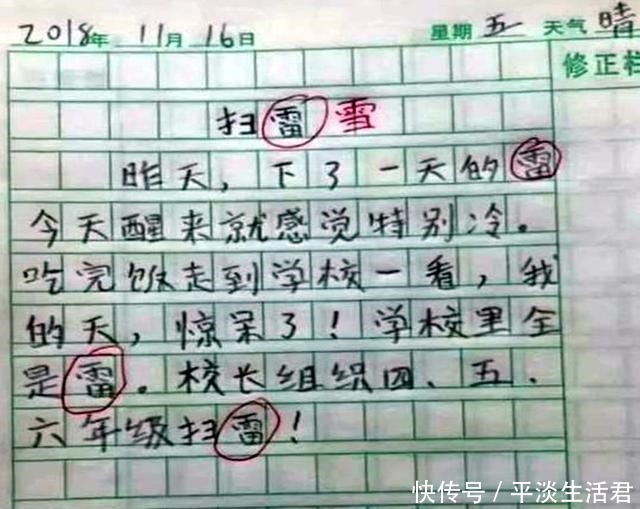 2018年 11月 16日 星期 五 天气 晴
修正栏
扫雷 雪
昨天，下了一天的雷
今天醒来就感觉特别冷。
吃完饭走到学校一看，我
的天，惊呆了！学校里全
是雷。校长组织四、五、
六年级扫雷！
快传号／平淡生活君